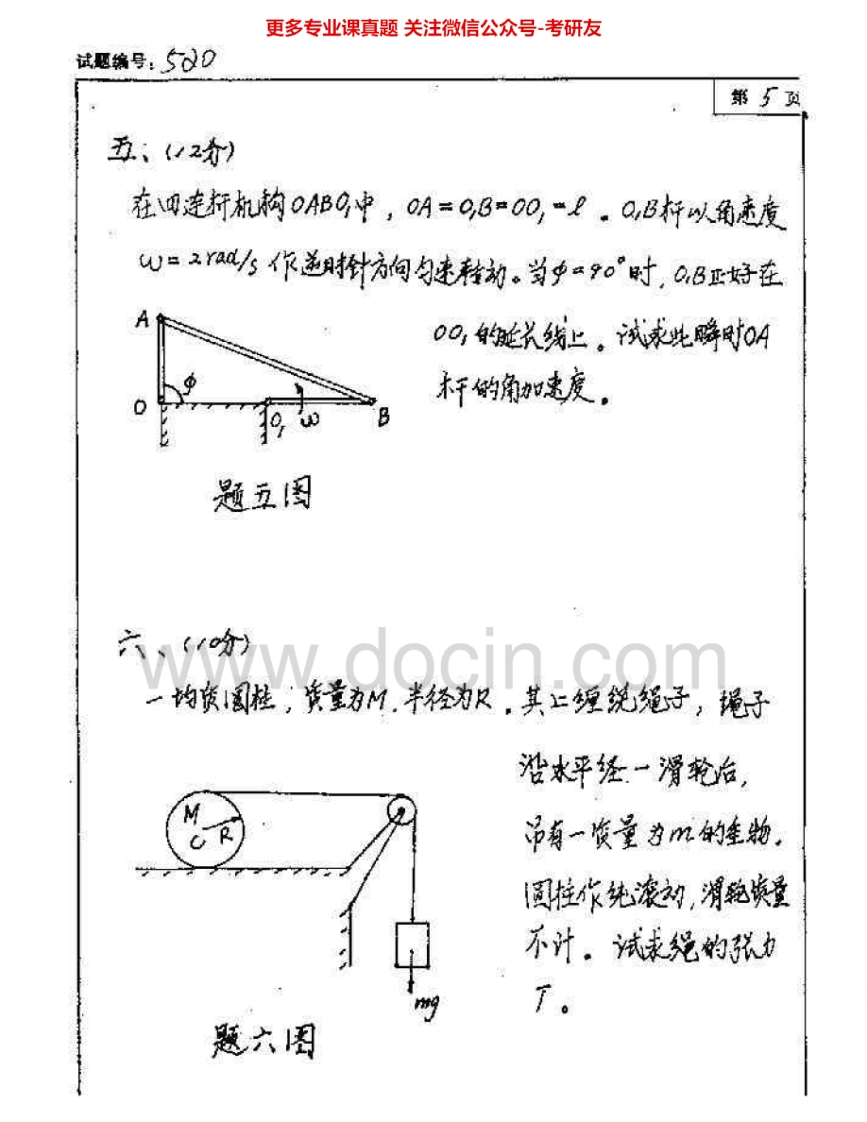 更多专业课真题 关注微信公众号-考研友
试题编号：520
第 5 页
五、(12分)
在四连杆机构OABO₁中，OA=O₁B=OO₁=l。O₁B杆以角速度
ω=2rad/s 作逆时针方向匀速转动。当φ=90°时，O₁B正好在
OO₁的延长线上。试求此瞬时OA
杆的角加速度。
A
φ
O
O₁
ω
B
题五图
六、(10分)
www.docin.com
一均质圆柱，质量为M，半径为R，其上缠绕绳子，绳子
沿水平经一滑轮后，
吊有一质量为m的重物。
圆柱作纯滚动，滑轮质量
不计。试求绳的张力
T。
M
C
R
mg
题六图